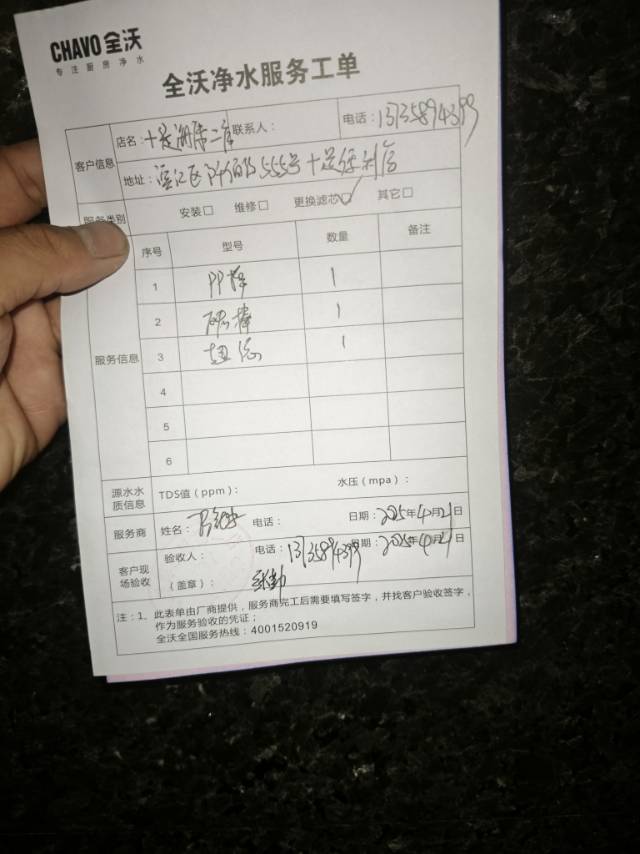 CHAVO 全沃
专注厨房净水
全沃净水服务工单
客户信息
店名：十足 二店 联系人： 电话：13735894399
地址：滨江区 555号十足便利店
服务类别 安装□ 维修□ 更换滤芯☑ 其它□
服务信息
序号 型号 数量 备注
1 PP棒 1
2 碳棒 1
3 超滤 1
4
5
6
源水水质信息 TDS值（ppm）： 水压（mpa）：
服务商 姓名： 电话： 日期：2025年4月21日
客户现场验收 验收人： 电话：13735894399 日期：2025年4月21日
（盖章）：
注：1、此表单由厂商提供，服务商完工后需要填写签字，并找客户验收签字，
作为服务验收的凭证；
全沃全国服务热线：4001520919